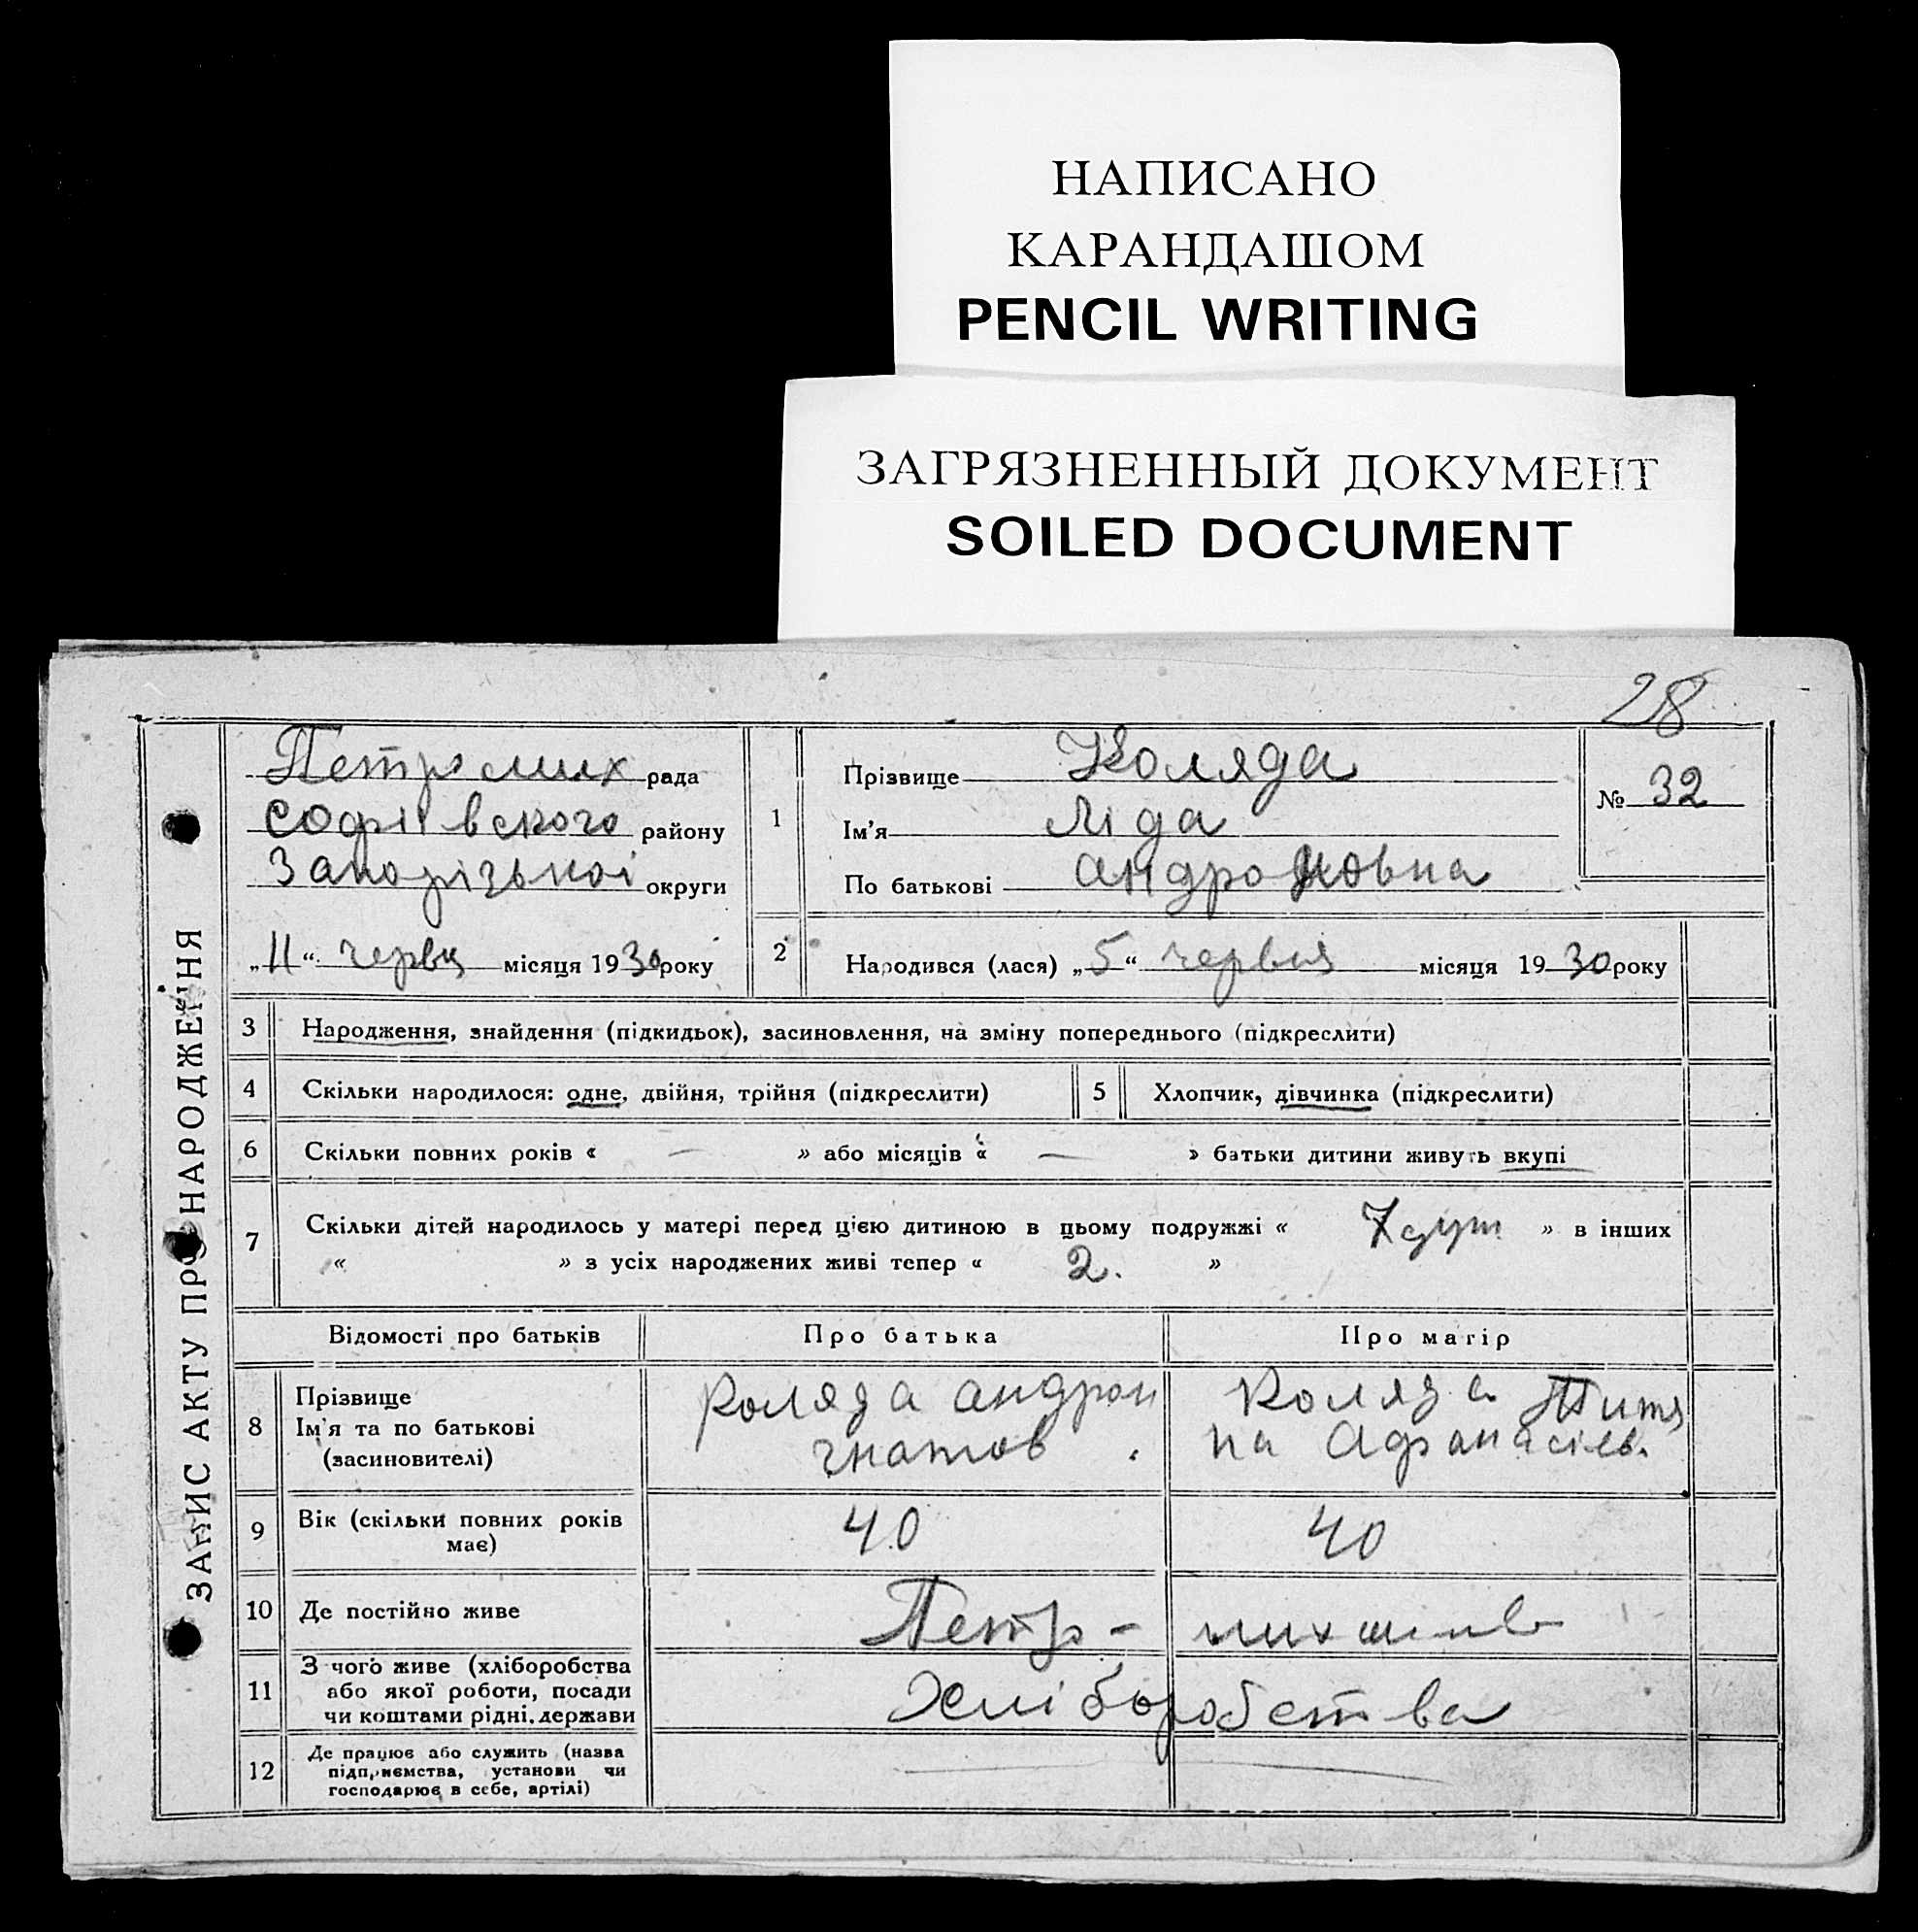 НАПИСАНО
КАРАНДАШОМ
PENCIL WRITING
ЗАГРЯЗНЕННЫЙ ДОКУМЕНТ
SOILED DOCUMENT
28
ЗАПИС АКТУ ПРО НАРОДЖЕННЯ
Петромих рада
Софіівского району
Запорізької округи
„11“ червц місяця 1930 року
1
Прізвище Коляда
Ім'я Ліда
По батькові Андроновна
№ 32
2
Народився (лася) „5“ червня місяця 1930 року
3 Народження, знайдення (підкидьок), засиновлення, на зміну попереднього (підкреслити)
4 Скільки народилося: одне, двійня, трійня (підкреслити) 5 Хлопчик, дівчинка (підкреслити)
6 Скільки повних років « — » або місяців « — » батьки дитини живуть вкупі
7 Скільки дітей народилось у матері перед цією дитиною в цьому подружжі « 7 душ » в інших
« » з усіх народжених живі тепер « 2. »
Відомості про батьків Про батька Про матір
8 Прізвище
Ім'я та по батькові
(засиновителі)
Коляда Андрон
Гнатов.
Коляда
на Афанасіев.
9 Вік (скільки повних років
має)
40 40
10 Де постійно живе Петр-
11 З чого живе (хліборобства
або якої роботи, посади
чи коштами рідні, держави
Хліборобства
12 Де працює або служить (назва
підприємства, установи чи
господарює в себе, артілі)